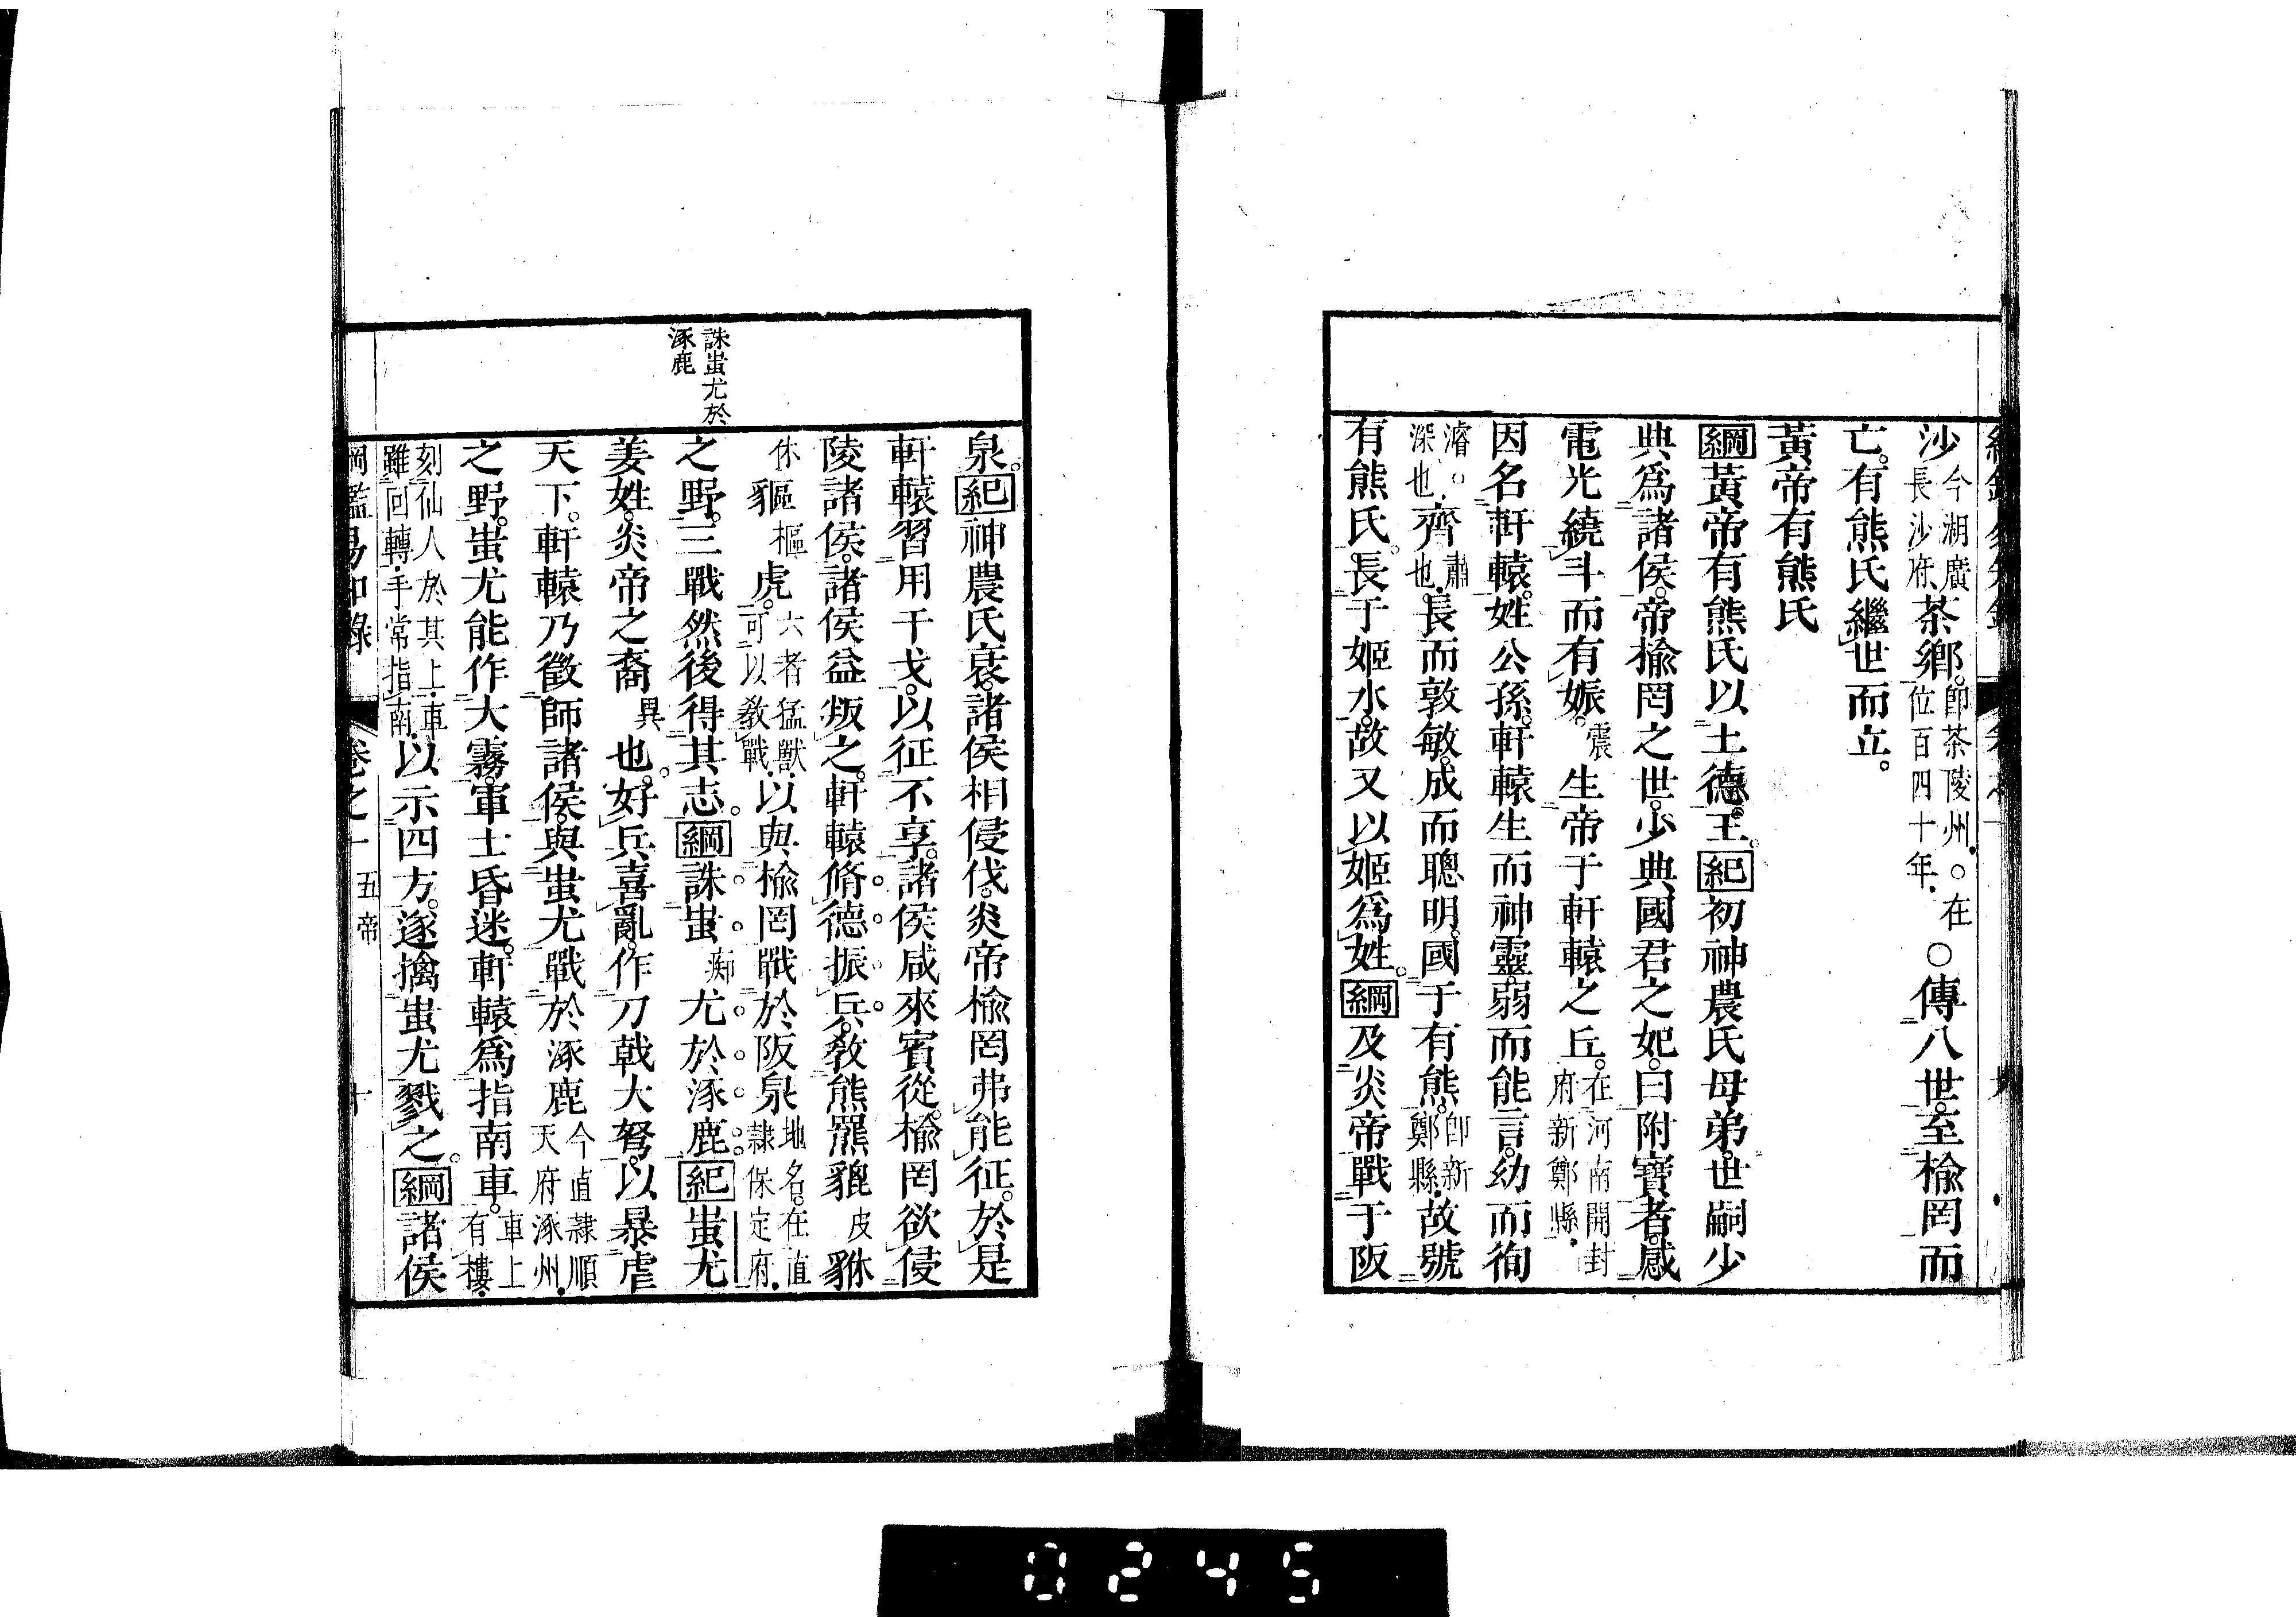 沙今湖廣長沙府茶鄉。卽茶陵州。○在位百四十年。○傳八世。至榆罔而
亡。有熊氏繼世而立。
黃帝有熊氏
綱黃帝有熊氏以土德。王。紀初神農氏母弟。世嗣少
典爲諸侯。帝榆罔之世。少典國君之妃。曰附寶者。感
電光繞斗而有娠。震生帝于軒轅之丘。在河南開封府新鄭縣。
因名軒轅。姓公孫。軒轅生而神靈。弱而能言。幼而徇
濬。深也。齊。肅也。長而敦敏。成而聰明。國于有熊。卽新鄭縣。故號
有熊氏。長于姬水。故又以姬爲姓。綱及炎帝戰于阪
誅蚩尤於
涿鹿
泉。紀神農氏衰。諸侯相侵伐。炎帝榆罔弗能征。於是
軒轅習用干戈。以征不享。諸侯咸來賓從。榆罔欲侵
陵諸侯。諸侯益叛之。軒轅脩德振兵。敎熊羆貔皮貅
休貙樞虎。六者猛獸。可以敎戰。以與榆罔戰於阪泉地名。在直隷保定府。
之野。三戰然後得其志。綱誅蚩痴尤於涿鹿。紀蚩尤
姜姓。炎帝之裔異也。好兵喜亂。作刀戟大弩。以暴虐
天下。軒轅乃徵師諸侯。與蚩尤戰於涿鹿今直隷順天府涿州。
之野。蚩尤能作大霧。軍士昏迷。軒轅爲指南車。車上有樓。
刻仙人於其上。車雖回轉。手常指南。以示四方。遂擒蚩尤戮之。綱諸侯
卷之一 五帝 十
0245